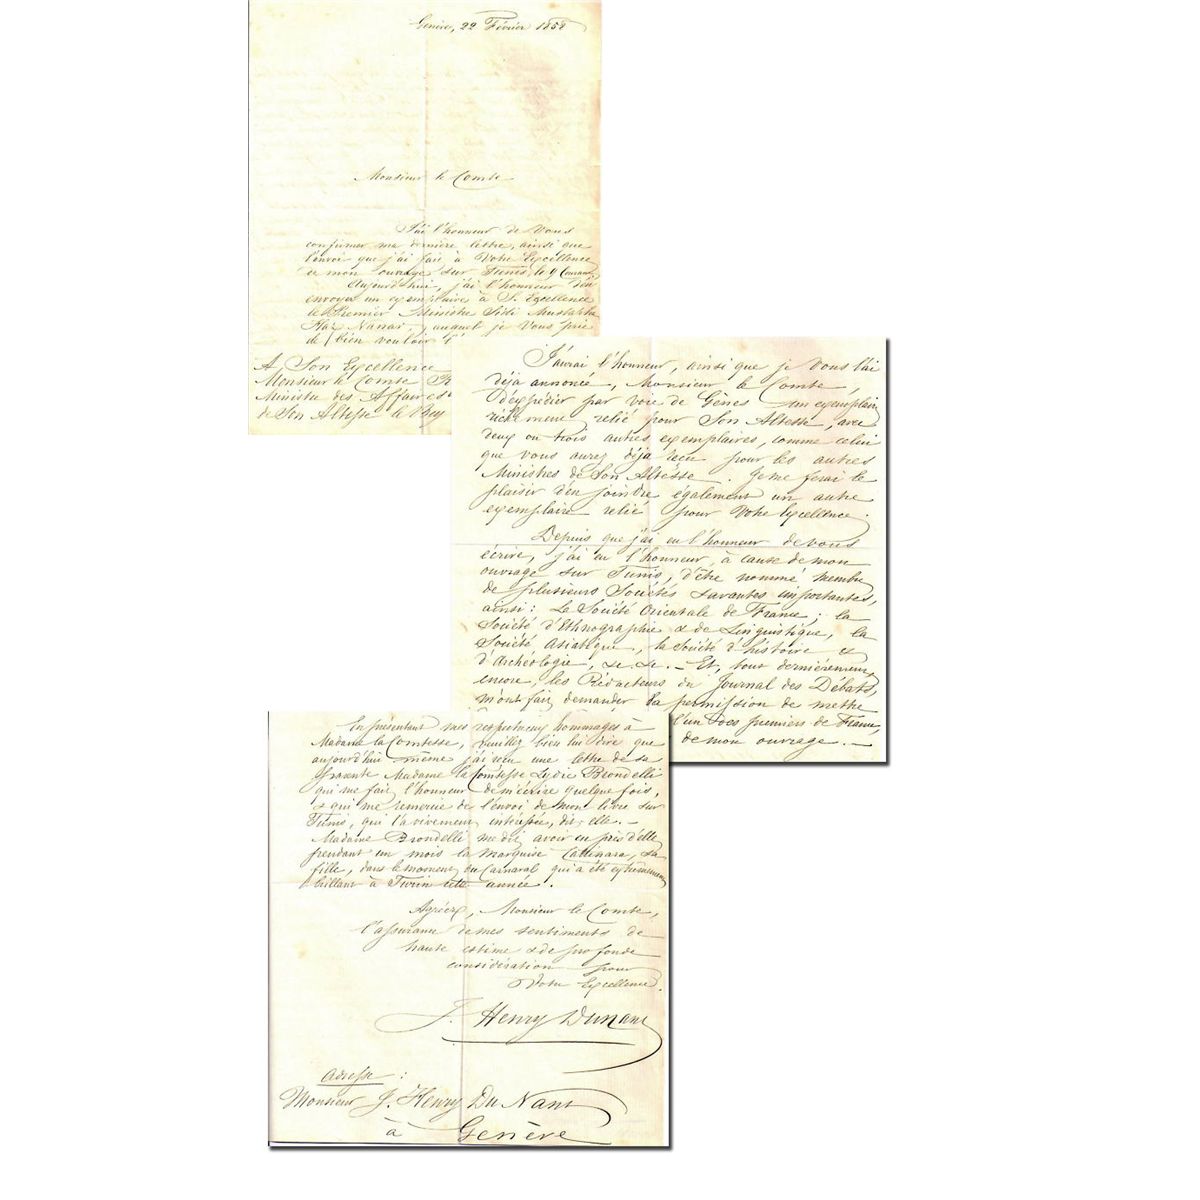 Genève, 22 Février 1858
Monsieur le Comte
J'ai l'honneur de Vous
confirmer ma dernière lettre, ainsi que
l'envoi que j'ai fait à Votre Excellence
de mon ouvrage sur Tunis, le 9 Courant.
Aujourd'hui, j'ai l'honneur d'en
envoyer un exemplaire à S. Excellence
le Premier Ministre Sidi Mustapha
auquel je Vous prie
de bien vouloir
A Son Excellence
Monsieur le Comte R
Ministre des Affaires
de Son Altesse le Bey
J'aurai l'honneur, ainsi que je Vous l'ai
déjà annoncé, Monsieur le Comte,
d'expédier par voie de Gênes un exemplaire
richement relié pour Son Altesse, avec
deux ou trois autres exemplaires, comme celui
que vous aurez déjà reçu pour les autres
Ministres de Son Altesse. Je me ferai le
plaisir d'en joindre également un autre
exemplaire relié pour Votre Excellence.
Depuis que j'ai eu l'honneur de vous
écrire, j'ai eu l'honneur, à cause de mon
ouvrage sur Tunis, d'être nommé membre
de plusieurs Sociétés savantes importantes,
ainsi: La Société Orientale de France; la
Société d'Ethnographie & de Linguistique, la
Société Asiatique, la Société d'histoire &
d'Archéologie, &c. &c. – Et, tout dernièrement
encore, les Rédacteurs du Journal des Débats,
m'ont fait demander la permission de mettre
l'un des premiers de France,
de mon ouvrage. –
En présentant mes respectueux hommages à
Madame la Comtesse, veuillez bien lui dire que
aujourd'hui même j'ai reçu une lettre de sa
parente Madame la Comtesse Lydie Brondelli
qui me fait l'honneur de m'écrire quelque fois,
& qui me remercie de l'envoi de mon livre sur
Tunis, qui l'a vivement intéressée, dit-elle. –
Madame Brondelli me dit avoir eu près d'elle
pendant un mois la Marquise Cattenara, sa
fille, dans le moment du Carnaval qui a été extrêmement
brillant à Turin cette année.
Agréez, Monsieur le Comte,
l'assurance de mes sentiments de
haute estime & de profonde
considération pour
Votre Excellence.
J. Henry Dunant
Adresse :
Monsieur J. Henry Du Nant
à Genève